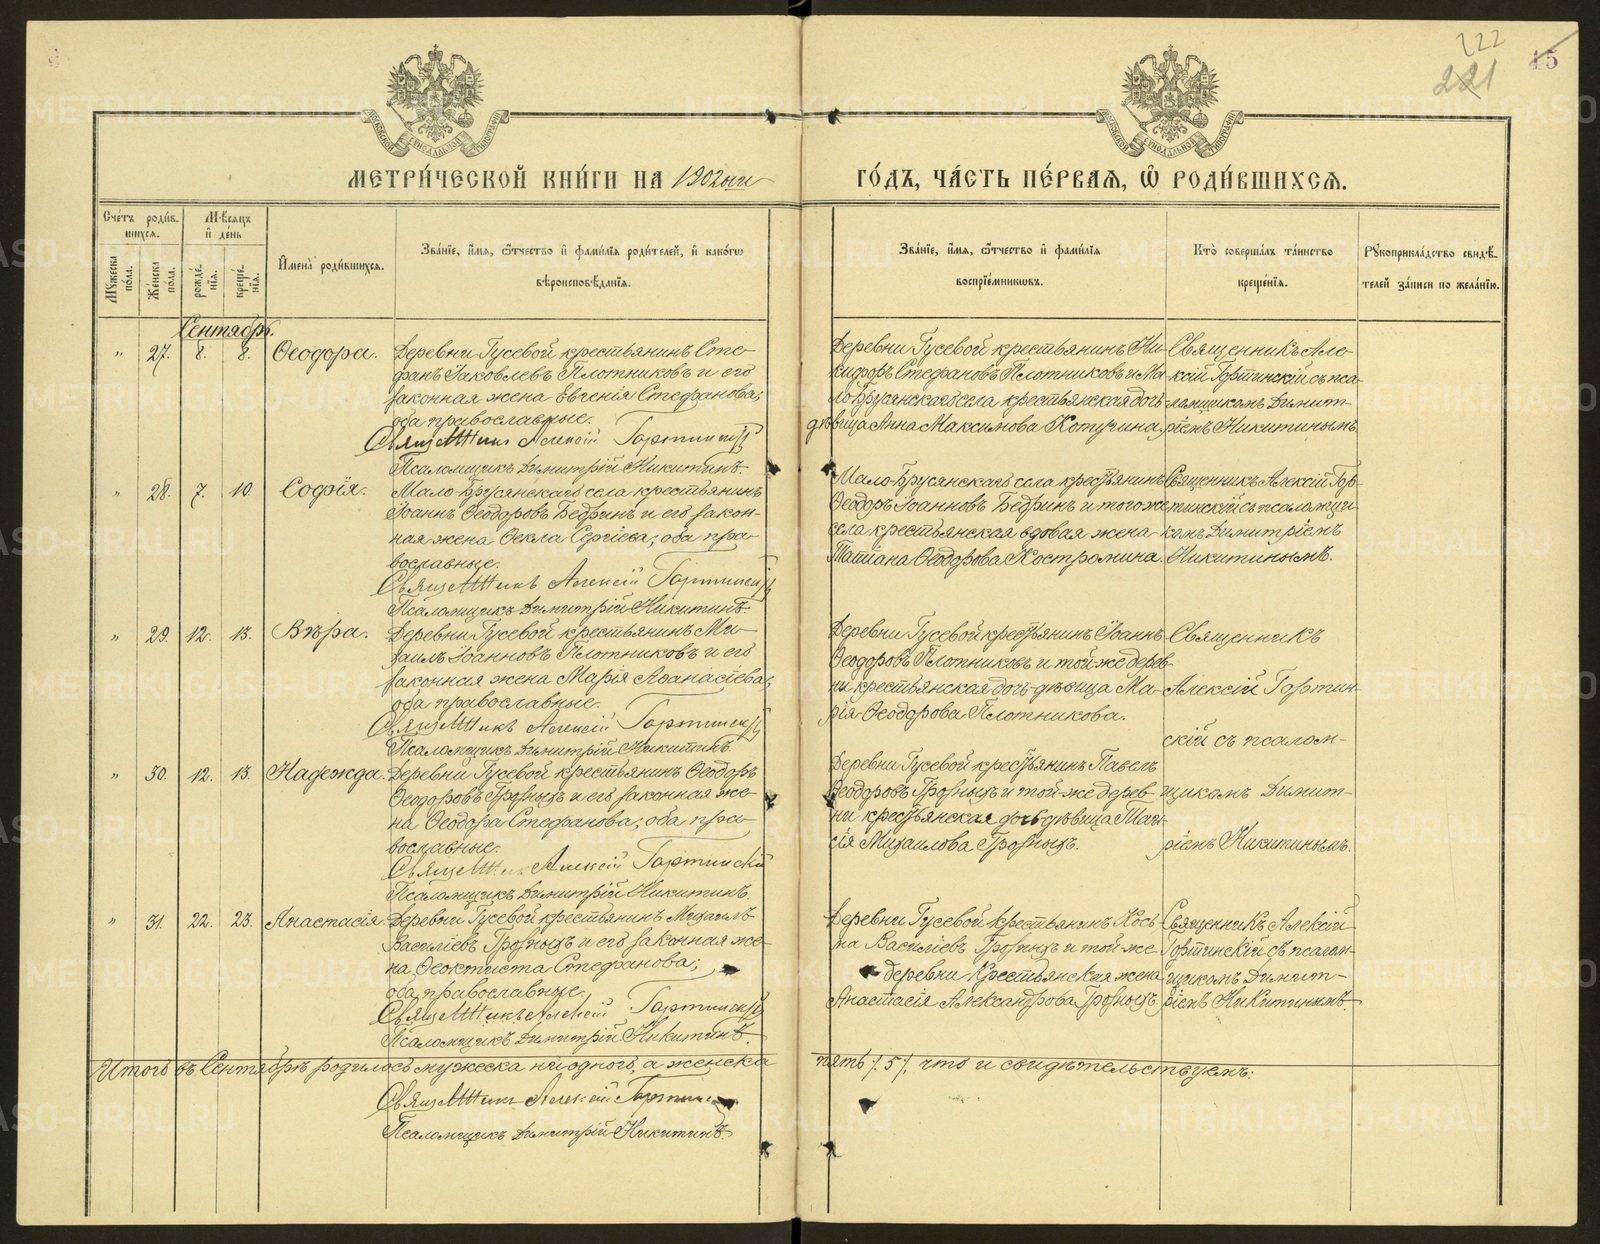 222
221
45
МЕТРИ́ЧЕСКОЙ КНИ́ГИ НА 1902ый
ГО́ДЪ, ЧА́СТЬ ПЕ́РВАѦ, Ѿ РОДИ́ВШИХСѦ.
Сче́тъ роди́в-
шихсѧ.
Мꙋ́жеска по́ла.
Же́нска по́ла.
Мѣ́сѧцъ
и҆ де́нь
рожде́-
нїѧ.
креще́-
нїѧ.
И҆мена̀ роди́вшихсѧ.
Зва́нїе, и҆́мѧ, ѻ҆́тчество и҆ фами́лїѧ роди́телей, и҆ како́гѡ
вѣроисповѣ́данїѧ.
Зва́нїе, и҆́мѧ, ѻ҆́тчество и҆ фами́лїѧ
воспрїе́мникѡвъ.
Кто̀ соверша́лъ та́инство
креще́нїѧ.
Рꙋкоприкла́дство свидѣ́-
телей за́писи по жела́нїю.
Сентябрь.
" 27. 8. 8. Ѳеодора.
Деревни Гусевой крестьянинъ Сте-
фанъ Іаковлевъ Плотниковъ и его
законная жена Евгенія Стефанова;
оба православные.
Священникъ Алексій Гортинскій
Псаломщикъ Димитрій Никитинъ.
Деревни Гусевой крестьянинъ Ни-
кифоръ Стефановъ Плотниковъ и Ма-
ло-Брусянскаго села крестьянская дочь
дѣвица Анна Максимова Котугина.
Священникъ Але-
ксій Гортинскій съ пса-
ломщикомъ Димит-
ріемъ Никитинымъ.
" 28. 7. 10. Софія.
Мало-Брусянскаго села крестьянинъ
Іоаннъ Ѳеодоровъ Бедринъ и его закон-
ная жена Ѳекла Сергіева; оба пра-
вославные.
Священникъ Алексій Гортинскій
Псаломщикъ Димитрій Никитинъ.
Мало-Брусянскаго села крестьянинъ
Ѳеодоръ Іоанновъ Бедринъ и того же
села крестьянская вдовая жена
Татіана Ѳеодорова Костромина.
Священникъ Алексій Гор-
тинскій съ псаломщи-
комъ Димитріемъ
Никитинымъ.
" 29. 12. 13. Вѣра.
Деревни Гусевой крестьянинъ Ми-
хаилъ Іоанновъ Плотниковъ и его
законная жена Марія Аѳанасіева;
оба православные.
Священникъ Алексій Гортинскій
Псаломщикъ Димитрій Никитинъ.
Деревни Гусевой крестьянинъ Іоаннъ
Ѳеодоровъ Плотниковъ и той же дерев-
ни крестьянская дочь-дѣвица Ма-
рія Ѳеодорова Плотникова.
Священникъ
Алексій Гортин-
скій съ псалом-
щикомъ Димит-
ріемъ Никитинымъ.
" 30. 12. 13. Надежда.
Деревни Гусевой крестьянинъ Ѳеодоръ
Ѳеодоровъ Грозныхъ и его законная же-
на Ѳеодора Стефанова; оба пра-
вославные.
Священникъ Алексій Гортинскій
Псаломщикъ Димитрій Никитинъ.
Деревни Гусевой крестьянинъ Павелъ
Ѳеодоровъ Грозныхъ и той же дерев-
ни крестьянская дочь дѣвица Таи-
сія Михаилова Грозныхъ.
" 31. 22. 23. Анастасія
Деревни Гусевой крестьянинъ Михаилъ
Василіевъ Грозныхъ и его законная же-
на Ѳеоктиста Стефанова;
оба православные.
Священникъ Алексій Гортинскій
Псаломщикъ Димитрій Никитинъ.
Деревни Гусевой крестьянинъ Кось-
ма Василіевъ Грозныхъ и той же
деревни крестьянская жена
Анастасія Александрова Грозныхъ.
Священникъ Алексій
Гортинскій съ псалом-
щикомъ Димит-
ріемъ Никитинымъ.
Итого въ Сентябрѣ родилось мужеска ни одного, а женска
пять /5/, что и свидѣтельствуемъ:
Священникъ Алексій Гортин
Псаломщикъ Димитрій Никитинъ.